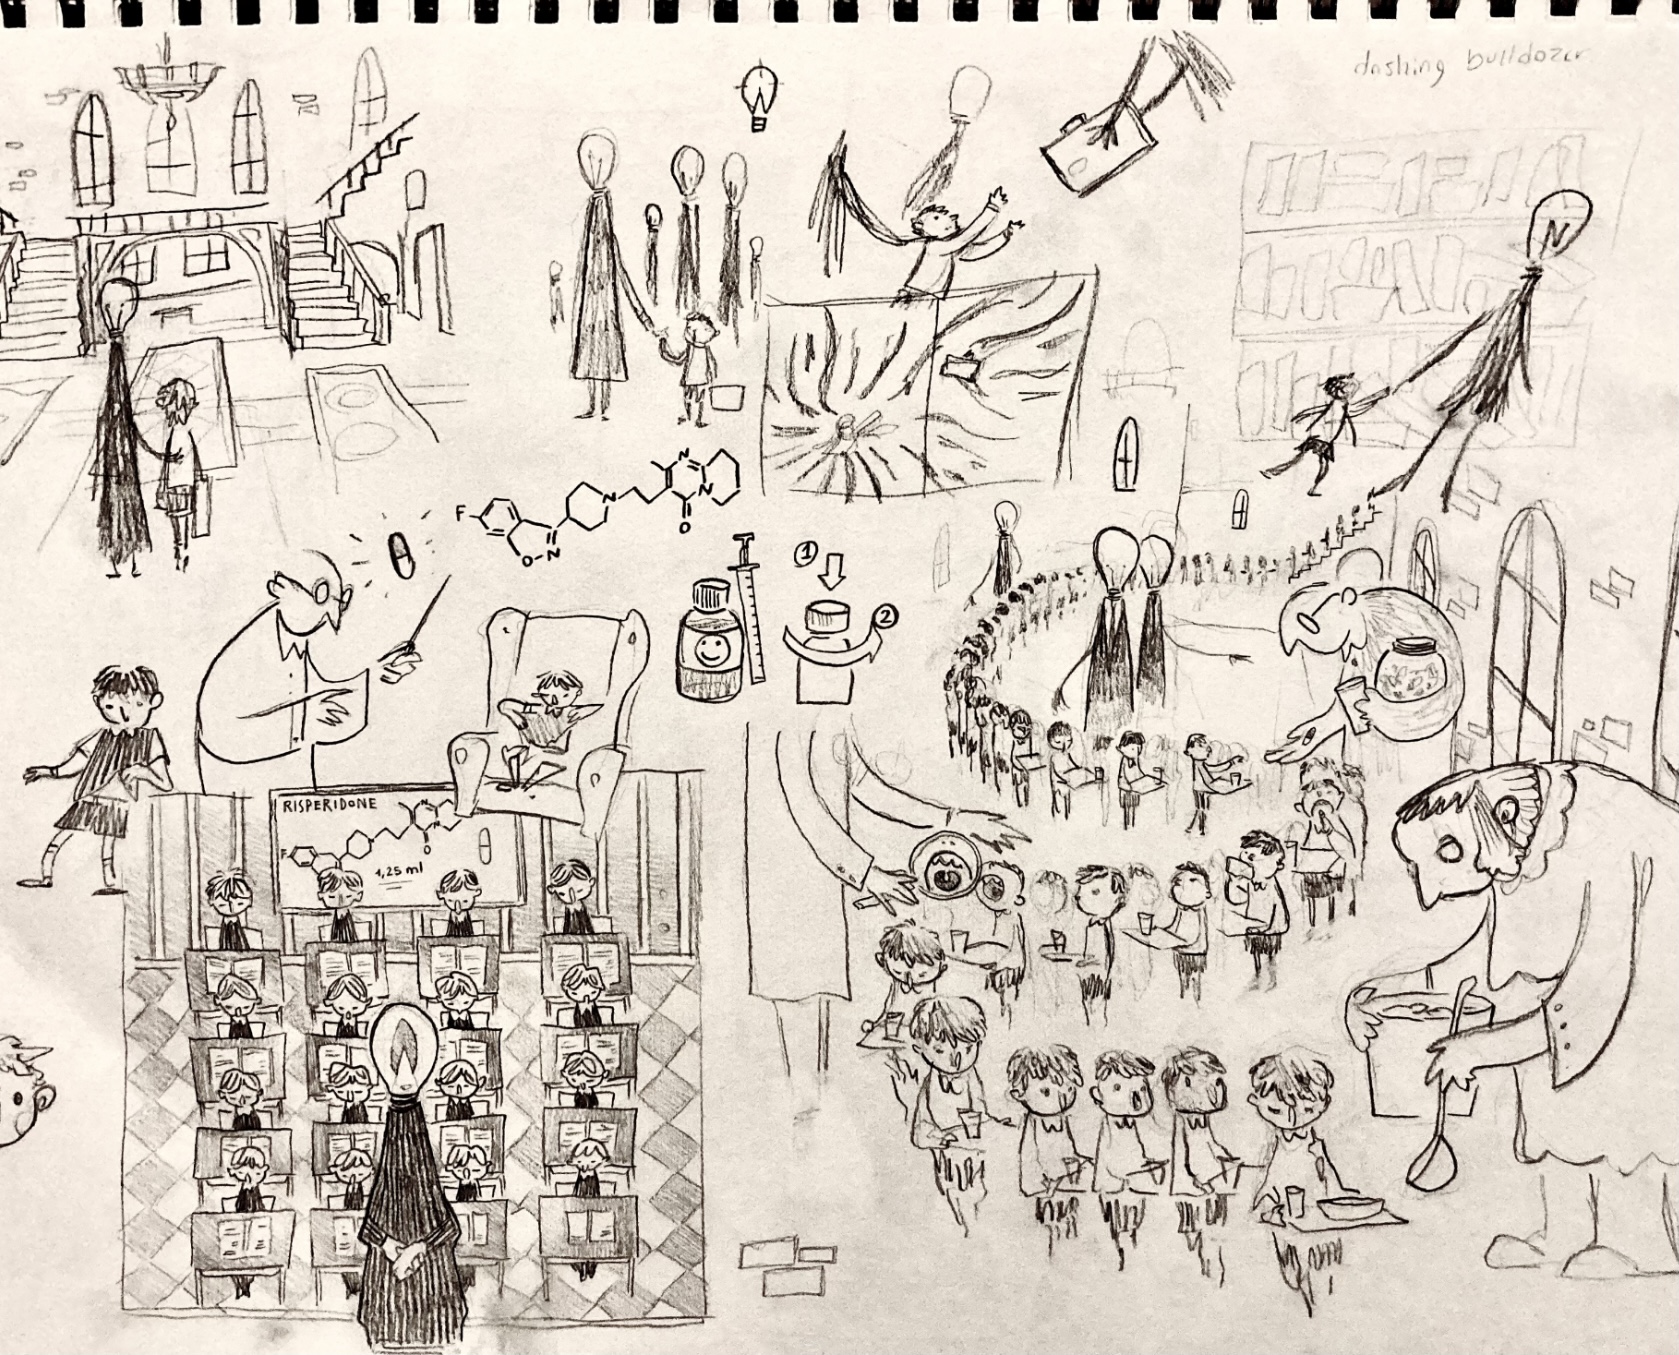 dashing bulldozer
F
N
N
N
O
O-N
①
②
RISPERIDONE
F
1,25 ml